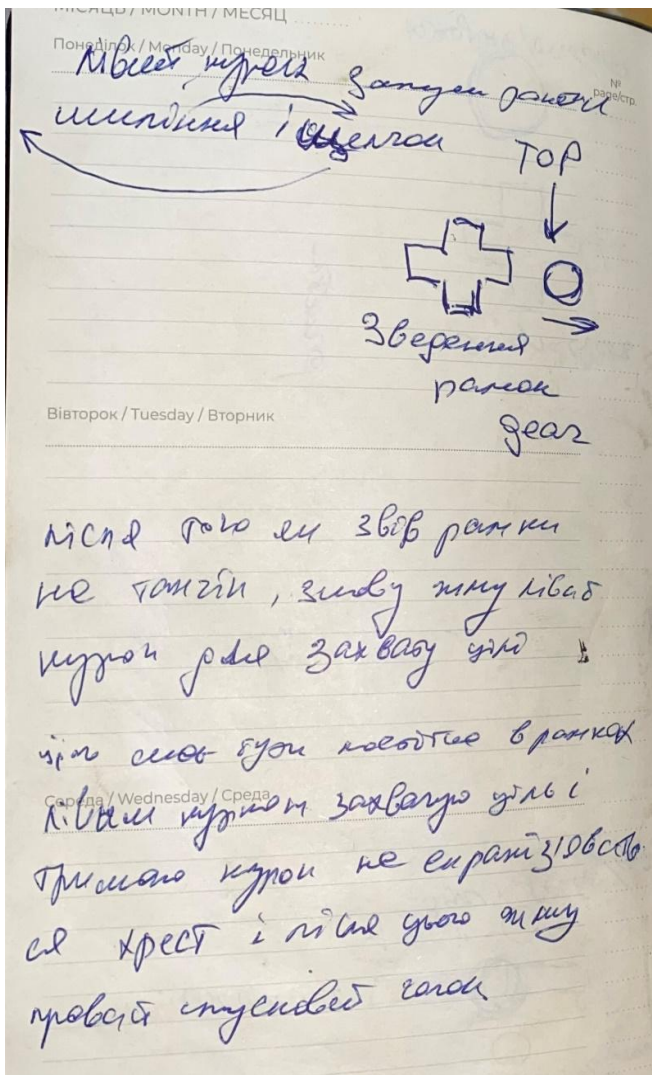 МІСЯЦЬ / MONTH / МЕСЯЦ
Понеділок / Monday / Понедельник
№
page/стр.
Лівий курок запуск ракети
шипіння і щелчок
TOP
Зведення
рамок
Вівторок / Tuesday / Вторник
після того як звів рамки
на танчік, знову жму лівий
курок для захвату цілі
ціль має бути повністю в рамках
Середа / Wednesday / Среда
лівим курком захвачую ціль і
тримаю курок на екрані зіявсть
ся хрест і після цього жму
правий спусковий гачок